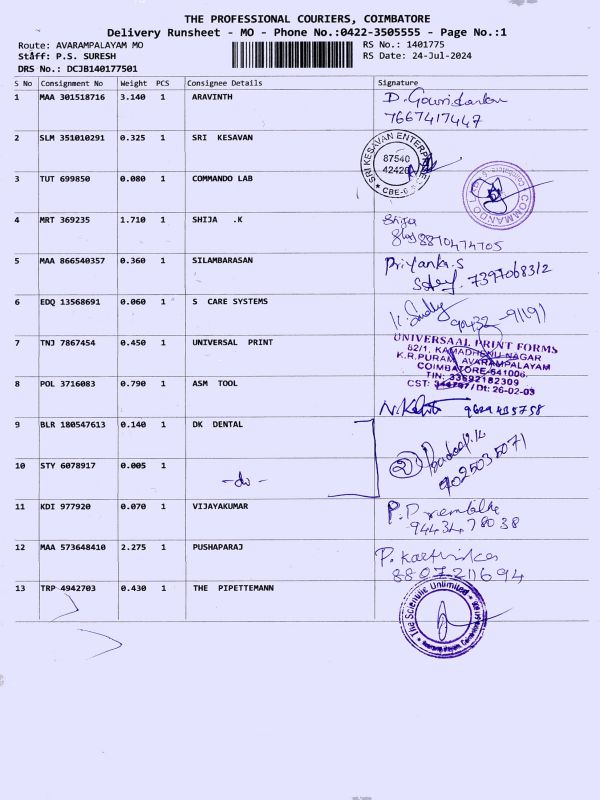 THE PROFESSIONAL COURIERS, COIMBATORE
Delivery Runsheet - MO - Phone No.:0422-3505555 - Page No.:1
Route: AVARAMPALAYAM MO RS No.: 1401775
Staff: P.S. SURESH RS Date: 24-Jul-2024
DRS No.: DCJB140177501
S No Consignment No Weight PCS Consignee Details Signature
1 MAA 301518716 3.140 1 ARAVINTH
7667417447
2 SLM 351010291 0.325 1 SRI KESAVAN
SRI KESAVAN ENTERPRISES
87540
CBE-6
3 TUT 699850 0.080 1 COMMANDO LAB
COMMANDO LAB
4 MRT 369235 1.710 1 SHIJA .K
Shija
8870474705
5 MAA 866540357 0.360 1 SILAMBARASAN
Priyanka.S
7397068312
6 EDQ 13568691 0.060 1 S CARE SYSTEMS
90432-91191
7 TNJ 7867454 0.450 1 UNIVERSAL PRINT
UNIVERSAAL PRINT FORMS
52/1, KAMADHENU NAGAR
K.R.PURAM, AVARAMPALAYAM
COIMBATORE-641006.
TIN: 33592182309
CST: Dt: 26-02-03
8 POL 3716083 0.790 1 ASM TOOL
9629435758
9 BLR 180547613 0.140 1 DK DENTAL
Pradeep.K
9025035071
10 STY 6078917 0.005 1
-do-
11 KDI 977920 0.070 1 VIJAYAKUMAR
94434 78038
12 MAA 573648410 2.275 1 PUSHAPARAJ
P. Karthika
8807211694
13 TRP 4942703 0.430 1 THE PIPETTEMANN
The Scientific Unlimited